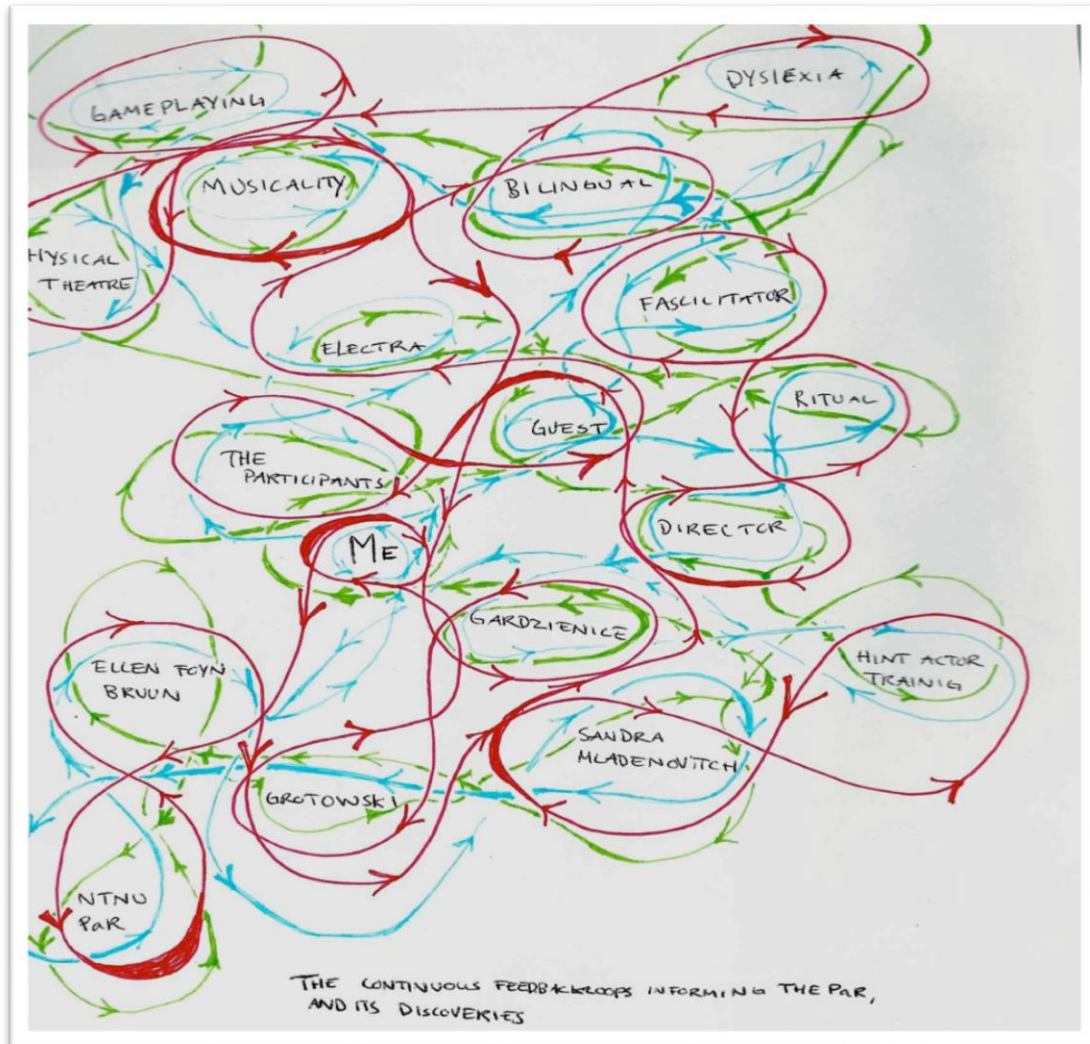 GAMEPLAYING
DYSLEXIA
MUSICALITY
BILINGUAL
HYSICAL
THEATRE
FASCILITATOR
ELECTRA
RITUAL
GUEST
THE
PARTICIPANTS
DIRECTOR
ME
GARDZIENICE
ELLEN FOYN
BRUUN
HINT ACTOR
TRAINIG
SANDRA
MLADENOVITCH
GROTOWSKI
NTNU
PaR
THE CONTINUOUS FEEDBACKLOOPS INFORMING THE PaR,
AND ITS DISCOVERIES